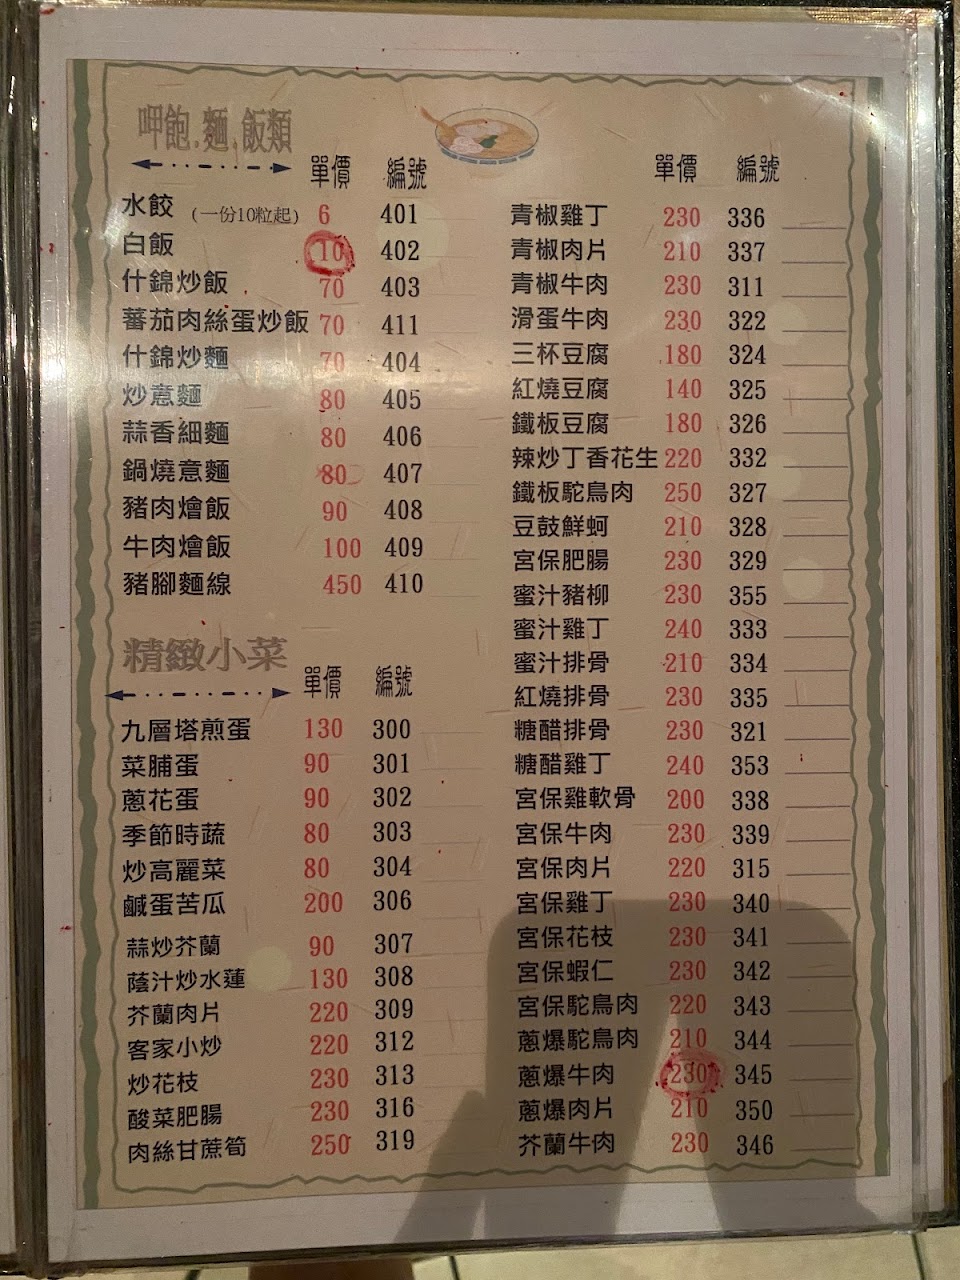 呷飽.麵.飯類
單價 編號
水餃 (一份10粒起) 6 401
白飯 10 402
什錦炒飯 70 403
蕃茄肉絲蛋炒飯 70 411
什錦炒麵 70 404
炒意麵 80 405
蒜香細麵 80 406
鍋燒意麵 80 407
豬肉燴飯 90 408
牛肉燴飯 100 409
豬腳麵線 450 410
精緻小菜
單價 編號
九層塔煎蛋 130 300
菜脯蛋 90 301
蔥花蛋 90 302
季節時蔬 80 303
炒高麗菜 80 304
鹹蛋苦瓜 200 306
蒜炒芥蘭 90 307
蔭汁炒水蓮 130 308
芥蘭肉片 220 309
客家小炒 220 312
炒花枝 230 313
酸菜肥腸 230 316
肉絲甘蔗筍 250 319
單價 編號
青椒雞丁 230 336
青椒肉片 210 337
青椒牛肉 230 311
滑蛋牛肉 230 322
三杯豆腐 180 324
紅燒豆腐 140 325
鐵板豆腐 180 326
辣炒丁香花生 220 332
鐵板駝鳥肉 250 327
豆鼓鮮蚵 210 328
宮保肥腸 230 329
蜜汁豬柳 230 355
蜜汁雞丁 240 333
蜜汁排骨 210 334
紅燒排骨 230 335
糖醋排骨 230 321
糖醋雞丁 240 353
宮保雞軟骨 200 338
宮保牛肉 230 339
宮保肉片 220 315
宮保雞丁 230 340
宮保花枝 230 341
宮保蝦仁 230 342
宮保駝鳥肉 220 343
蔥爆駝鳥肉 210 344
蔥爆牛肉 230 345
蔥爆肉片 210 350
芥蘭牛肉 230 346